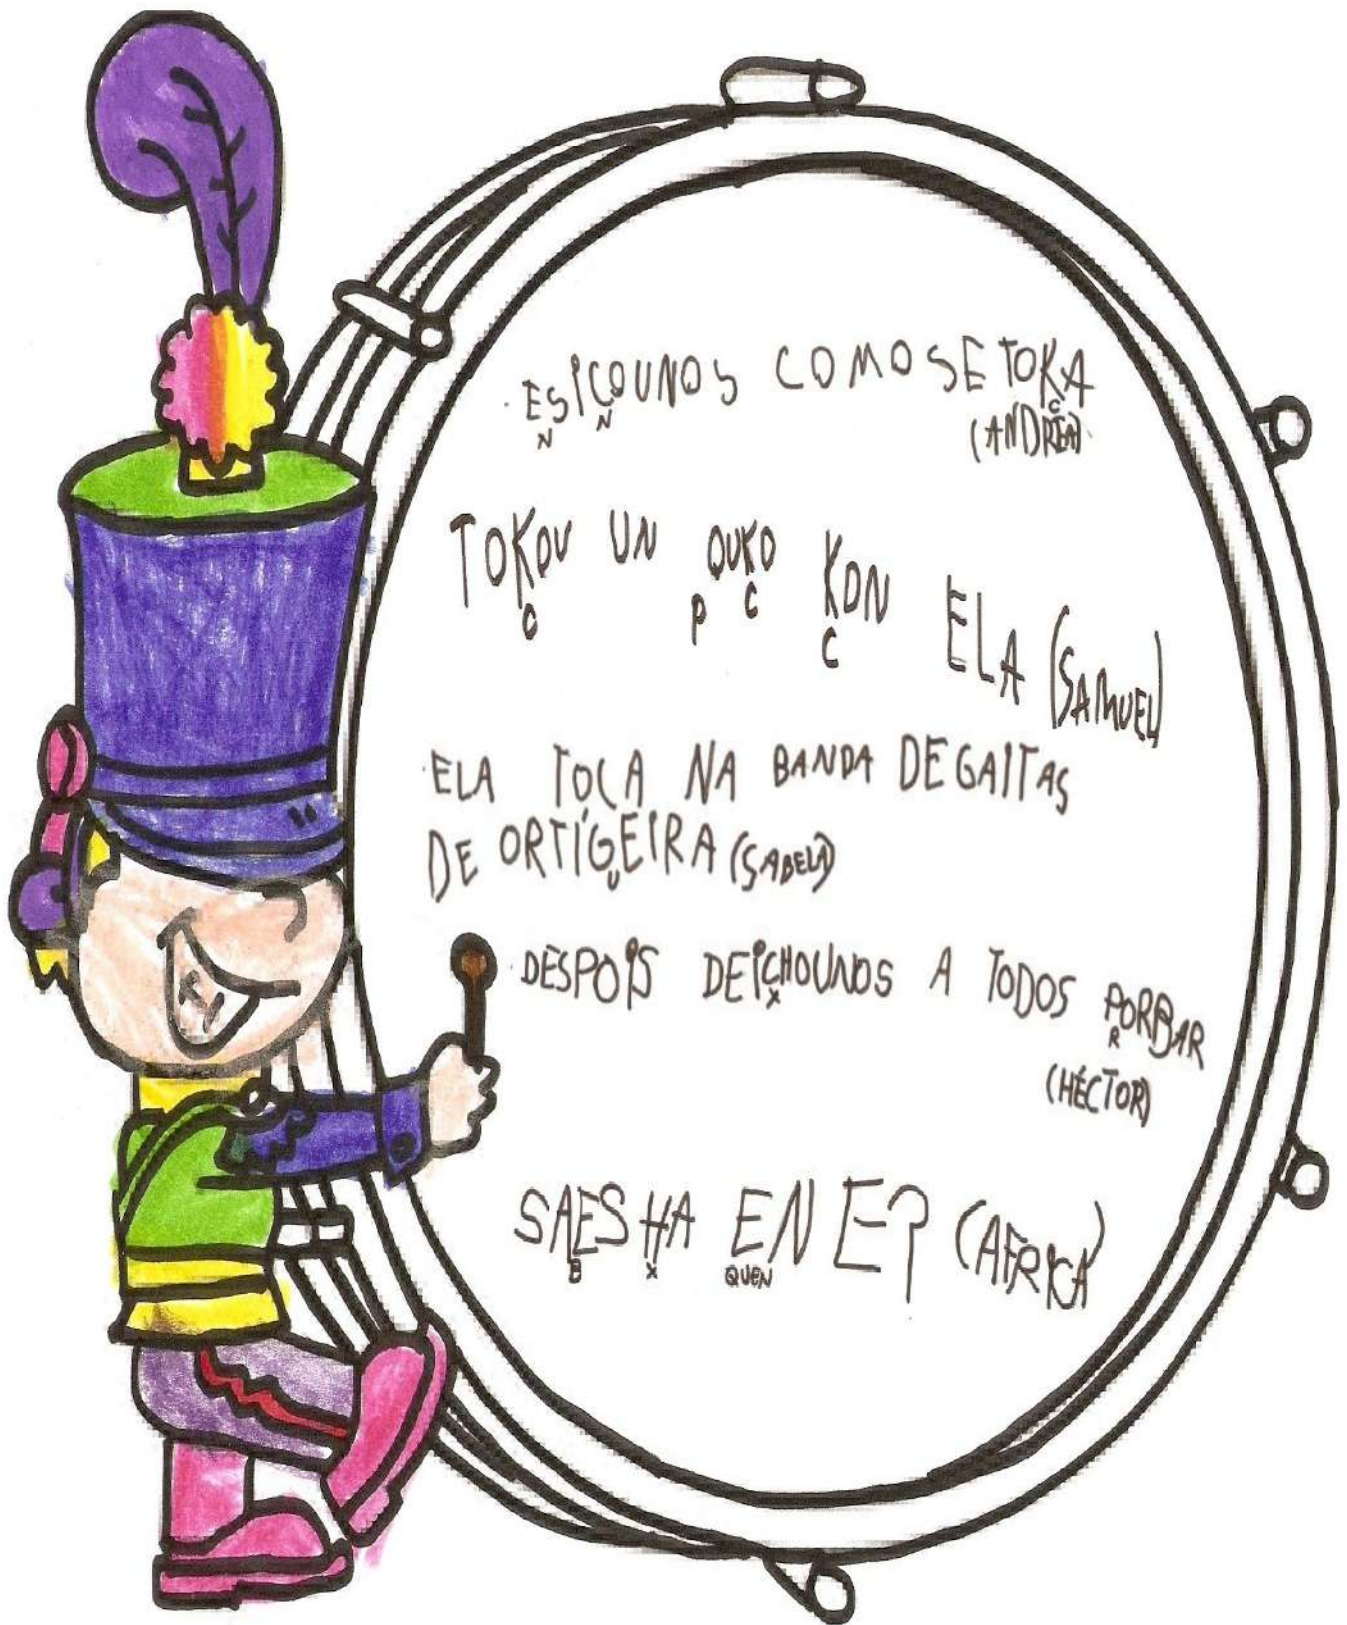 ESIÇOUNOS COMO SE TOKA
N N C
(ANDREA)
TOKOU UN OUKO KON ELA (SAMUEL)
C P C C
ELA TOCA NA BANDA DE GAITAS
DE ORTIGEIRA (SABELA)
U
DESPOIS DEICHOUNOS A TODOS PORBAR
X R
(HÉCTOR)
SAES HA EN E? (AFRICA)
B X QUEN